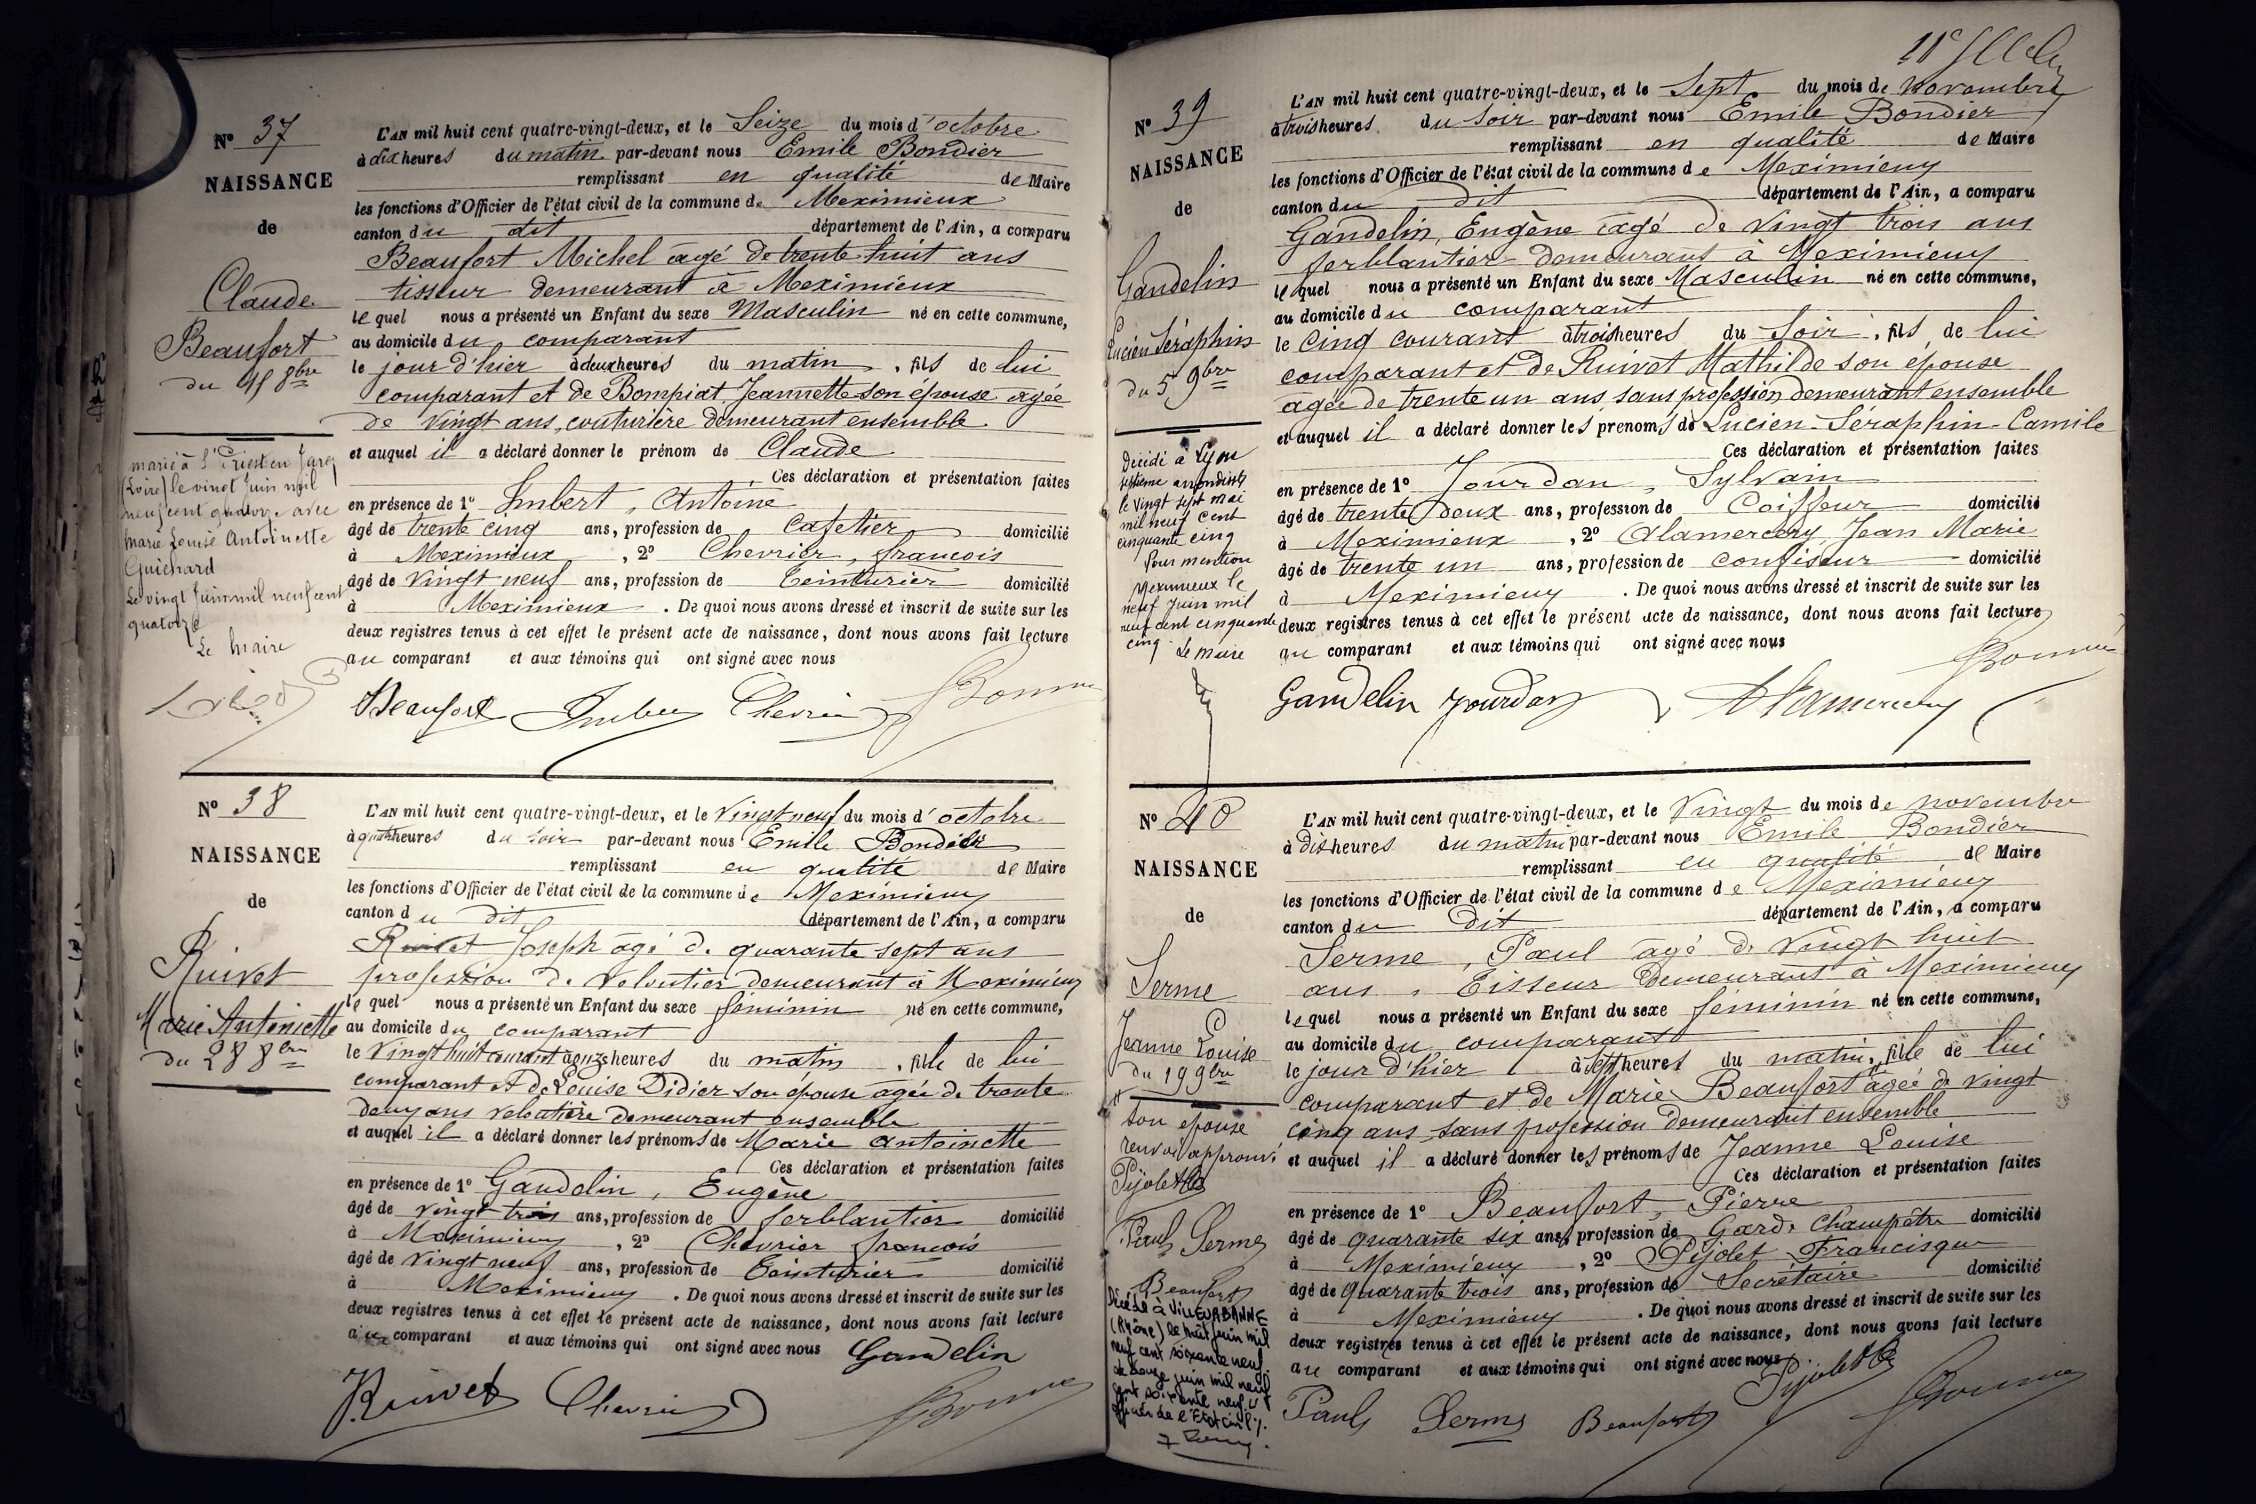 Nº 37
NAISSANCE
de
Claude
Beaufort
du 15 8bre
marié à St Priest en Jarez
(Loire) le vingt juin mil
neuf cent quatorze avec
Marie Louise Antoinette
Guichard
Le vingt juin mil neuf cent
quatorze
Le Maire
L'AN mil huit cent quatre-vingt-deux, et le Seize du mois d'octobre
à dix heures du matin par-devant nous Emile Bondier
remplissant en qualité de Maire
les fonctions d'Officier de l'état civil de la commune de Meximieux
canton du dit département de l'Ain, a comparu
Beaufort Michel âgé de trente huit ans
tisseur demeurant à Meximieux
lequel nous a présenté un Enfant du sexe Masculin né en cette commune,
au domicile du comparant
le jour d'hier à deux heures du matin, fils de lui
comparant et de Bompiat Jeannette son épouse agée
de vingt ans, couturière demeurant ensemble
et auquel il a déclaré donner le prénom de Claude
Ces déclaration et présentation faites
en présence de 1º Imbert, Antoine
âgé de trente cinq ans, profession de Cafetier domicilié
à Meximieux, 2º Chevrier, françois
âgé de vingt neuf ans, profession de teinturier domicilié
à Meximieux. De quoi nous avons dressé et inscrit de suite sur les
deux registres tenus à cet effet le présent acte de naissance, dont nous avons fait lecture
au comparant et aux témoins qui ont signé avec nous
Beaufort Imbert Chevrier
Nº 38
NAISSANCE
de
Ruivet
Marie Antoinette
du 28 8bre
L'AN mil huit cent quatre-vingt-deux, et le Vingt neuf du mois d'octobre
à quatre heures du soir par-devant nous Emile Bondier
remplissant en qualité de Maire
les fonctions d'Officier de l'état civil de la commune de Meximieux
canton du dit département de l'Ain, a comparu
Ruivet Joseph âgé de quarante sept ans
profession de veloutier demeurant à Meximieux
lequel nous a présenté un Enfant du sexe féminin né en cette commune,
au domicile du comparant
le Vingt huit courant à onze heures du matin, fille de lui
comparant et de Louise Didier son épouse agée de trente
deux ans veloutière demeurant ensemble
et auquel il a déclaré donner les prénoms de Marie Antoinette
Ces déclaration et présentation faites
en présence de 1º Gandelin, Eugène
âgé de vingt trois ans, profession de ferblantier domicilié
à Meximieux, 2º Chevrier françois
âgé de vingt neuf ans, profession de teinturier domicilié
à Meximieux. De quoi nous avons dressé et inscrit de suite sur les
deux registres tenus à cet effet le présent acte de naissance, dont nous avons fait lecture
au comparant et aux témoins qui ont signé avec nous Gandelin
Ruivet Chevrier
11e
Nº 39
NAISSANCE
de
Gandelin
Lucien Séraphin
du 5 9bre
Décédé à Lyon
arrondisst
le vingt sept mai
mil neuf cent
cinquante cinq
Pour mention
Meximieux le
neuf juin mil
neuf cent cinquante
cinq
Le Maire
L'AN mil huit cent quatre-vingt-deux, et le Sept du mois de novembre
à trois heures du soir par-devant nous Emile Bondier
remplissant en qualité de Maire
les fonctions d'Officier de l'état civil de la commune de Meximieux
canton du dit département de l'Ain, a comparu
Gandelin, Eugène âgé de vingt trois ans
ferblantier demeurant à Meximieux
lequel nous a présenté un Enfant du sexe Masculin né en cette commune,
au domicile du comparant
le cinq courant à trois heures du soir, fils de lui
comparant et de Ruivet Mathilde son épouse
agée de trente un ans, sans profession demeurant ensemble
et auquel il a déclaré donner les prénoms de Lucien-Séraphin-Camile
Ces déclaration et présentation faites
en présence de 1º Jourdan, Sylvain
âgé de trente deux ans, profession de Coiffeur domicilié
à Meximieux, 2º Alamercery, Jean Marie
âgé de trente un ans, profession de confiseur domicilié
à Meximieux. De quoi nous avons dressé et inscrit de suite sur les
deux registres tenus à cet effet le présent acte de naissance, dont nous avons fait lecture
au comparant et aux témoins qui ont signé avec nous
Gandelin Jourdan Alamercery
Nº 40
NAISSANCE
de
Serme
Jeanne Louise
du 19 9bre
son épouse
renvoi approuvé
Pijolet
Paul Serme
Beaufort
Décédé à VILLEURBANNE
(Rhône) le huit juin mil
neuf cent soixante neuf
le douze juin mil neuf
cent soixante neuf. L'
officier de l'Etat civil
L'AN mil huit cent quatre-vingt-deux, et le Vingt du mois de novembre
à dix heures du matin par-devant nous Emile Bondier
remplissant en qualité de Maire
les fonctions d'Officier de l'état civil de la commune de Meximieux
canton du dit département de l'Ain, a comparu
Serme, Paul âgé de vingt huit
ans, Tisseur demeurant à Meximieux
lequel nous a présenté un Enfant du sexe féminin né en cette commune,
au domicile du comparant
le jour d'hier à sept heures du matin, fille de lui
comparant et de Marie Beaufort âgée de vingt
cinq ans, sans profession demeurant ensemble
et auquel il a déclaré donner les prénoms de Jeanne Louise
Ces déclaration et présentation faites
en présence de 1º Beaufort, Pierre
âgé de quarante six ans, profession de Garde Champêtre domicilié
à Meximieux, 2º Pijolet Francisque
âgé de quarante trois ans, profession de Secrétaire domicilié
à Meximieux. De quoi nous avons dressé et inscrit de suite sur les
deux registres tenus à cet effet le présent acte de naissance, dont nous avons fait lecture
au comparant et aux témoins qui ont signé avec nous Pijolet
Paul Serme Beaufort